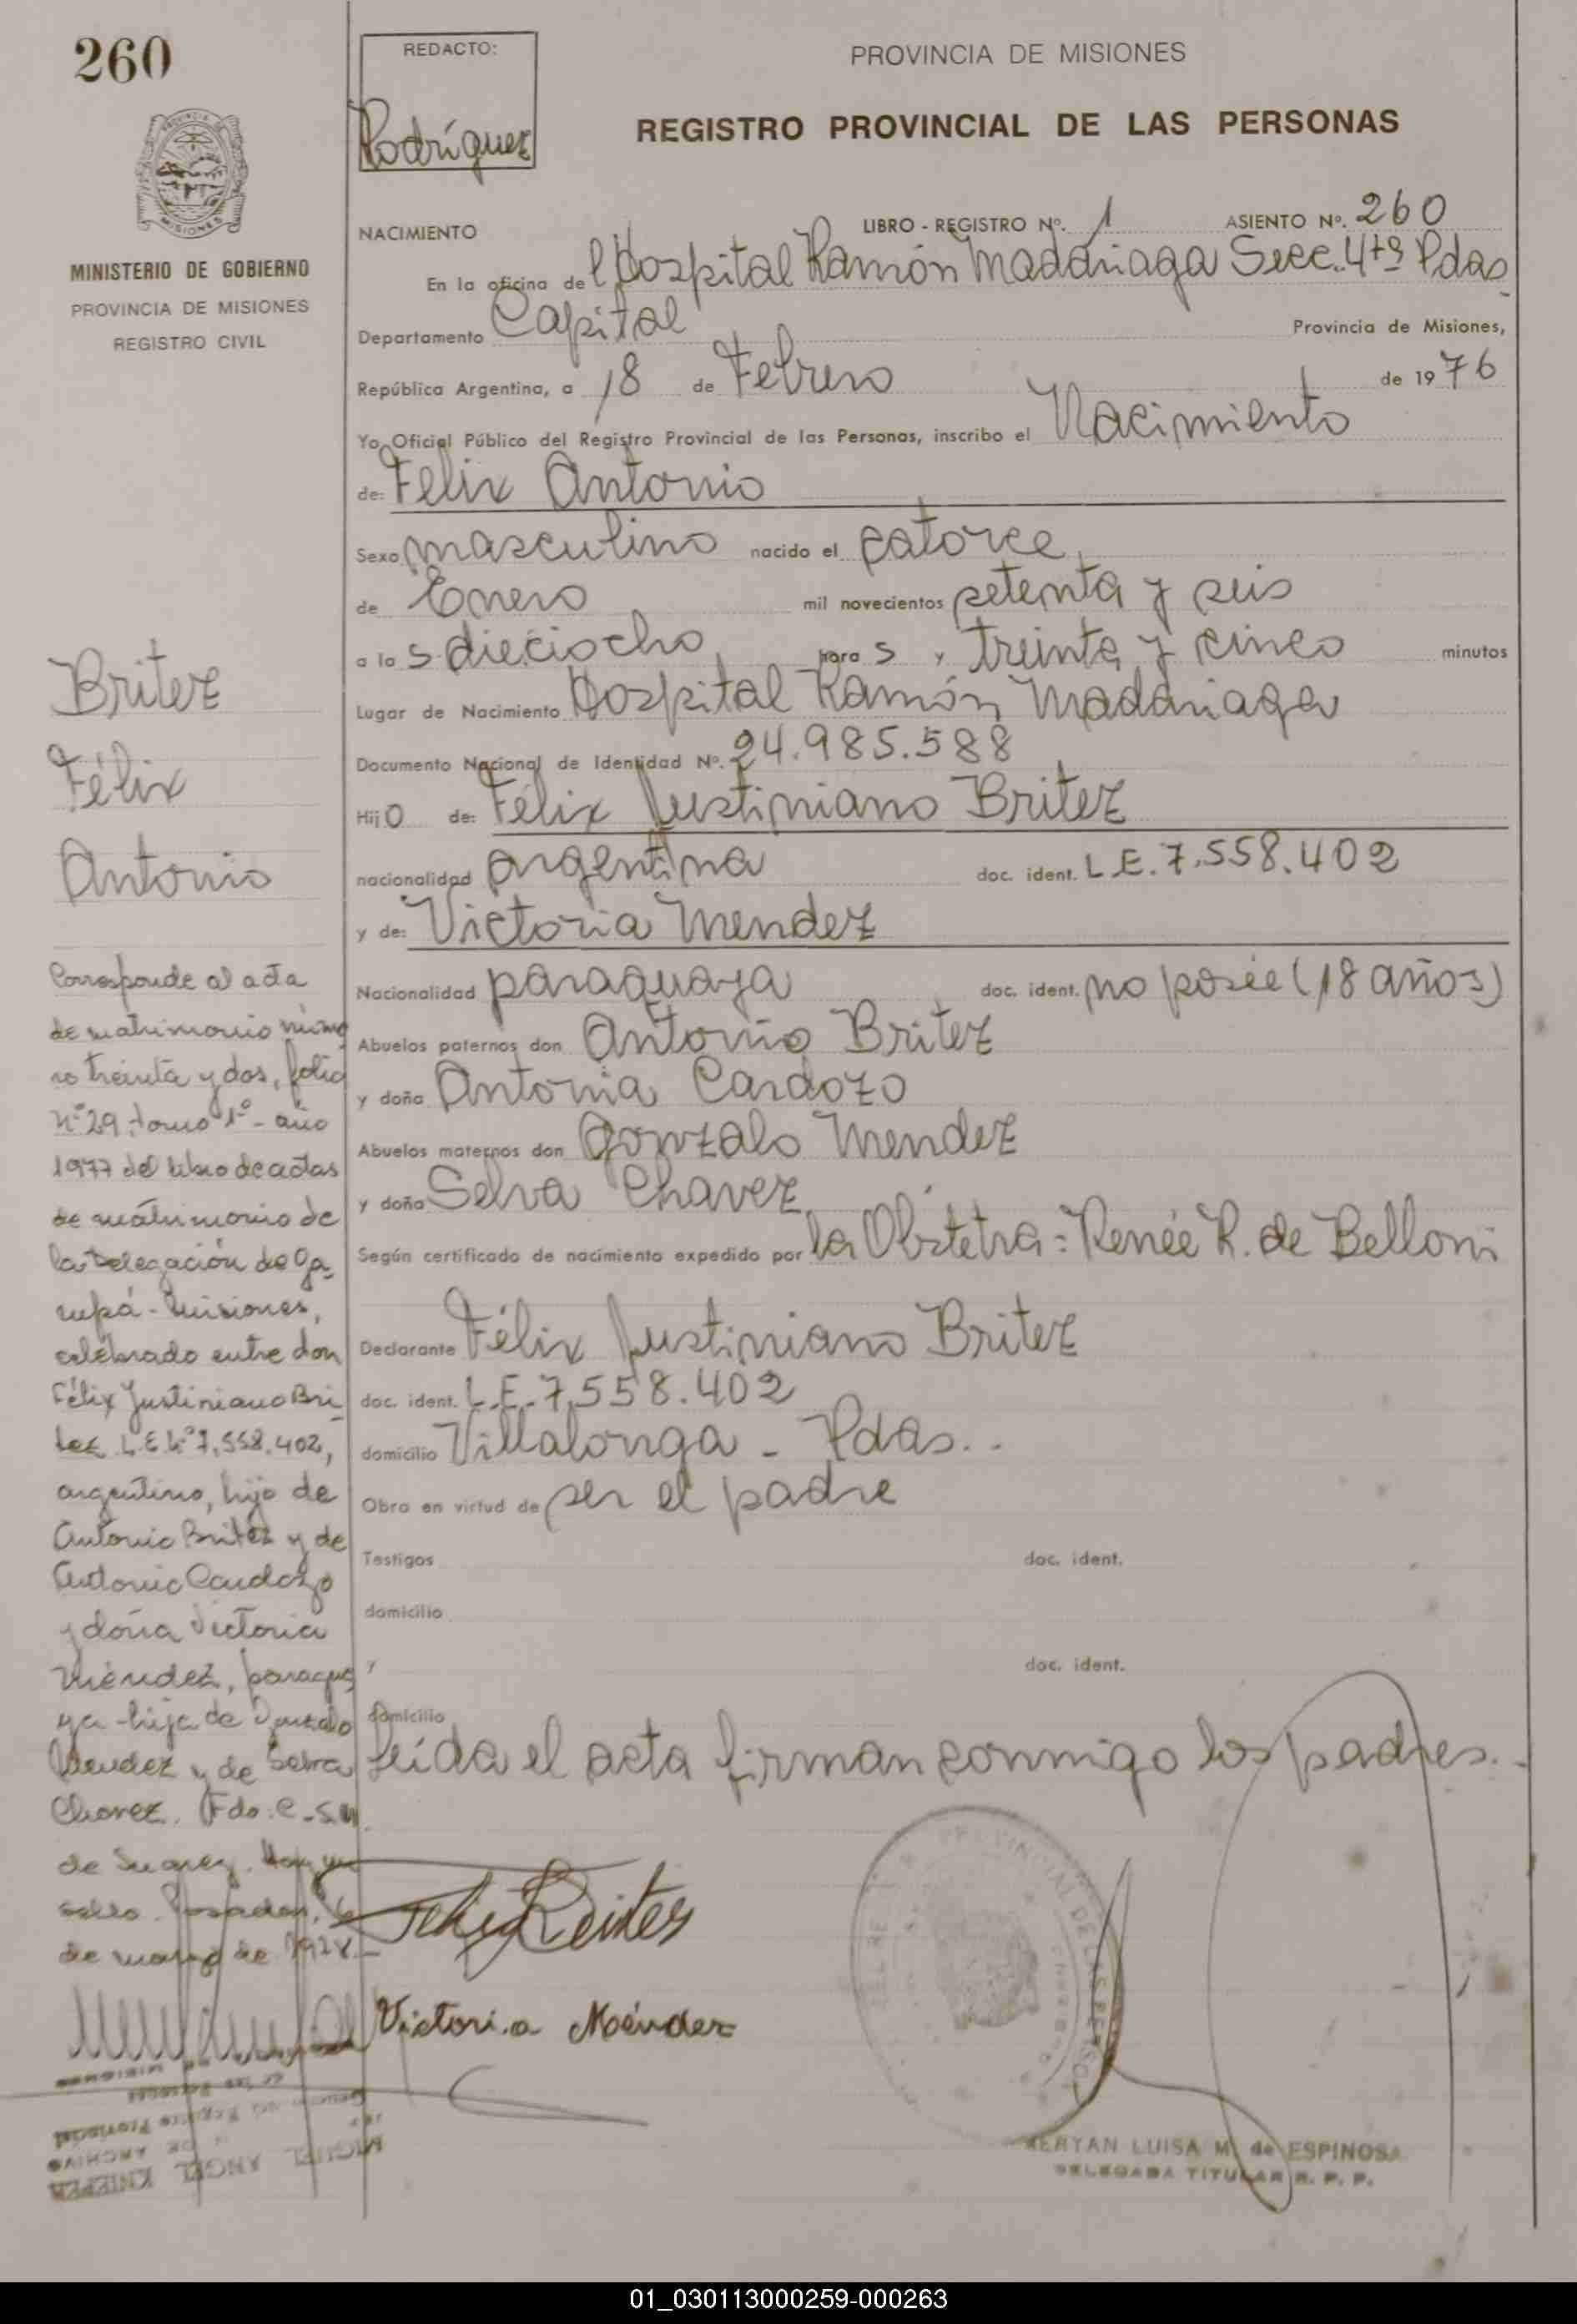 260
REDACTO:
Rodríguez
PROVINCIA DE MISIONES
REGISTRO PROVINCIAL DE LAS PERSONAS
MISIONES
MINISTERIO DE GOBIERNO
PROVINCIA DE MISIONES
REGISTRO CIVIL
NACIMIENTO LIBRO - REGISTRO Nº. 1 ASIENTO Nº. 260
En la oficina del Hospital Ramón Madariaga Secc. 4ta Pdas
Departamento Capital Provincia de Misiones,
República Argentina, a 18 de Febrero de 1976
Yo, Oficial Público del Registro Provincial de las Personas, inscribo el Nacimiento
de: Felix Antonio
Sexo masculino nacido el catorce
de Enero mil novecientos setenta y seis
a las dieciocho horas y treinta y cinco minutos
Lugar de Nacimiento Hospital Ramón Madariaga
Documento Nacional de Identidad Nº. 24.985.588
Hijo de: Félix Justiniano Britez
nacionalidad argentina doc. ident. L.E. 7.558.402
y de: Victoria Mendez
Nacionalidad paraguaya doc. ident. no posée (18 años)
Abuelos paternos don Antonio Britez
y doña Antonia Cardozo
Abuelos maternos don Gonzalo Mendez
y doña Selva Chavez
Según certificado de nacimiento expedido por la Obstetra = Renée R. de Belloni
Declarante Félix Justiniano Britez
doc. ident. L.E. 7.558.402
domicilio Villalonga - Pdas..
Obra en virtud de ser el padre
Testigos doc. ident.
domicilio
y doc. ident.
domicilio
leída el acta firman conmigo los padres.
Britez
Félix
Antonio
Corresponde al acta
de matrimonio núme
ro treinta y dos, folio
nº 29, tomo 1º - año
1977 del libro de actas
de matrimonio de
la Delegación de Ga-
rupá - Misiones,
celebrado entre don
Félix Justiniano Bri
tez L.E. Nº 7.558.402,
argentino, hijo de
Antonio Britez y de
Antonia Cardozo
y doña Victoria
Méndez, paragua
ya - hija de Gonzalo
Mendez y de Selva
Chavez. Fdo. C.
de Suarez. Hay un
sello. Posadas, 6
de marzo de
Victoria Méndez
MIGUEL ANGEL KNIEPER
ARCHIVO
Registro Provincial
de las Personas
PROVINCIAL DE LAS PERSONAS
MERYAN LUISA M. de ESPINOSA
DELEGADA TITULAR R. P. P.
01_030113000259-000263